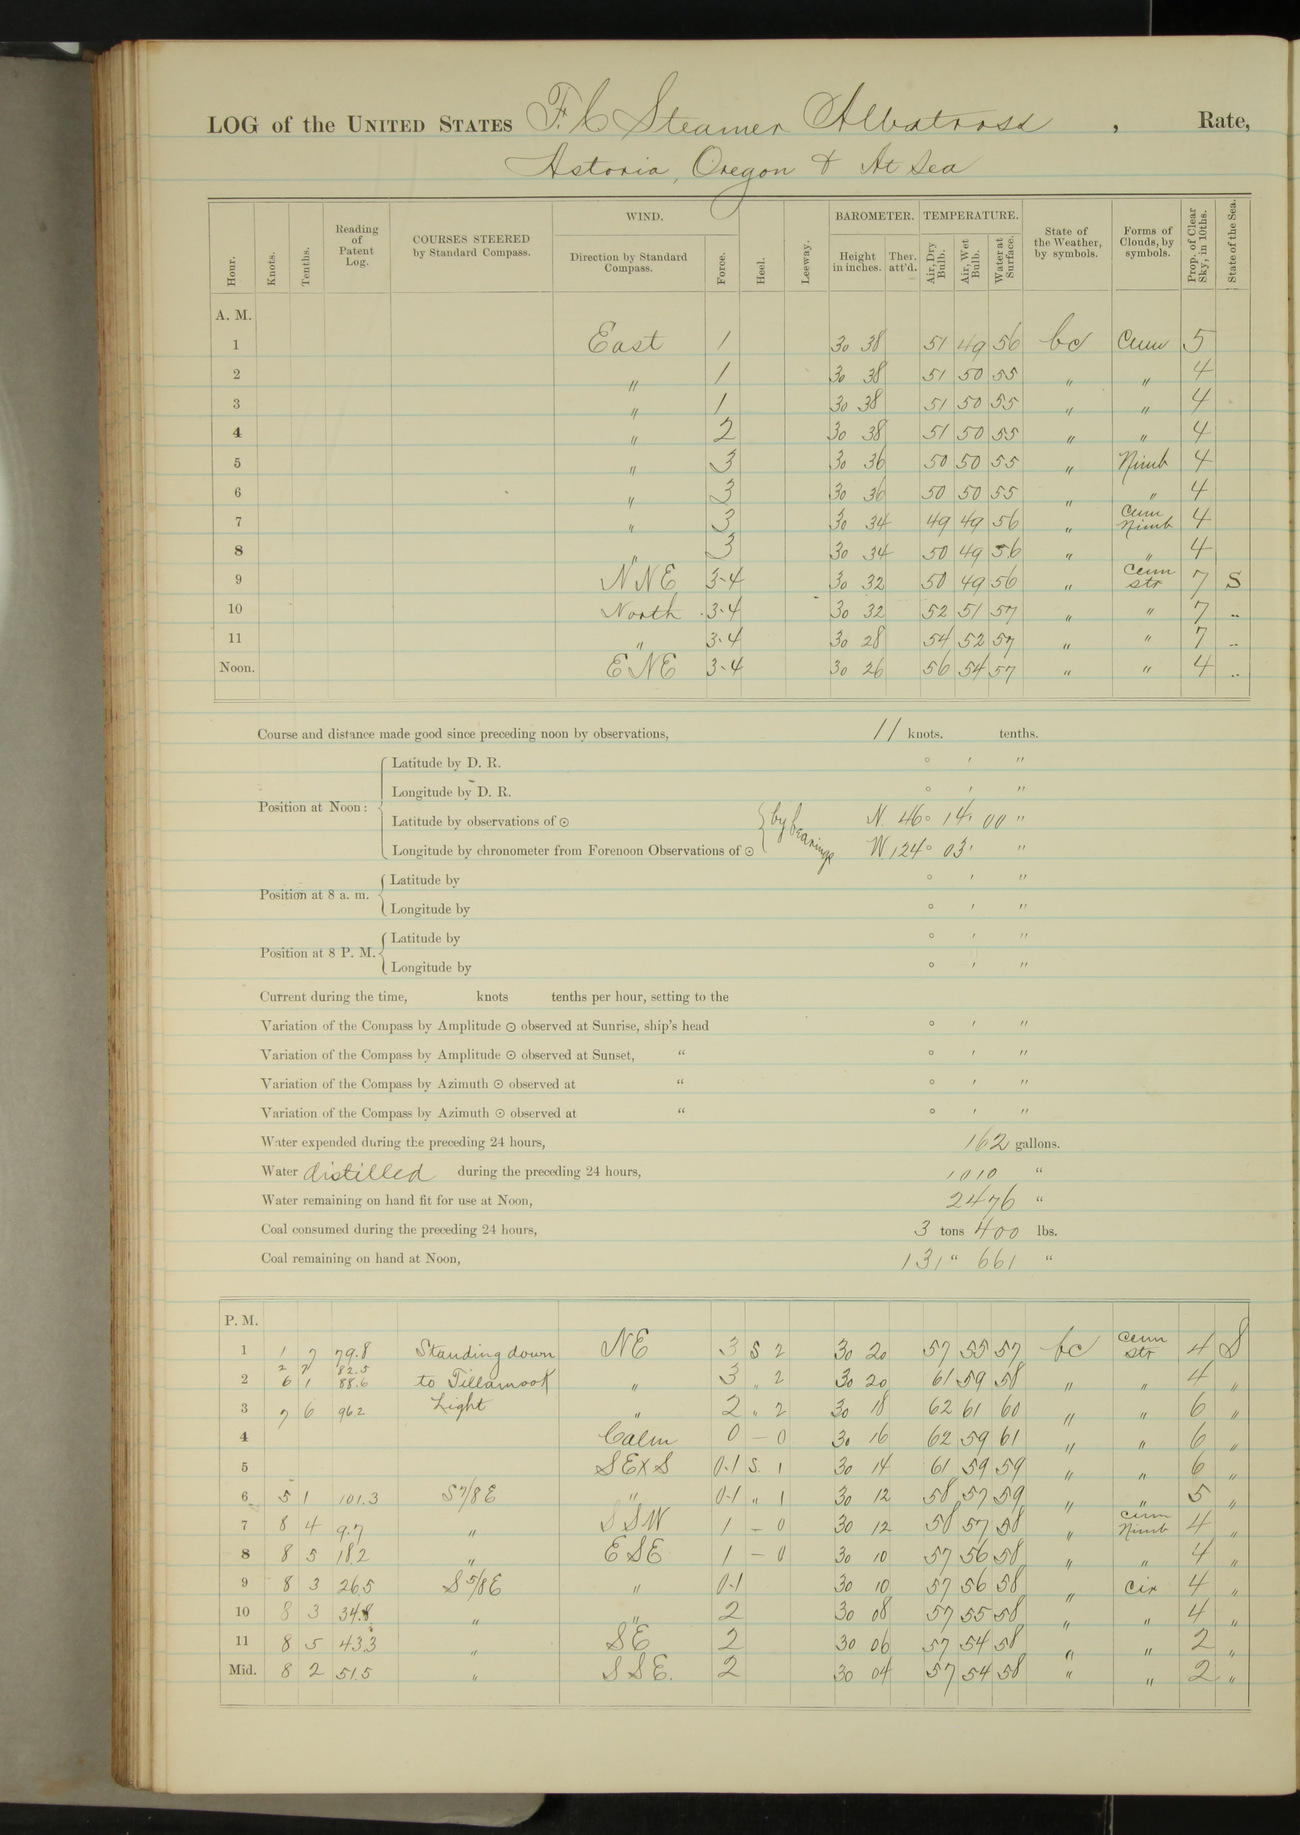 LOG of the UNITED STATES F. C Steamer Albatross , Rate,
Astoria, Oregon & At Sea
Hour. Knots. Tenths. Reading of Patent Log. COURSES STEERED by Standard Compass. WIND. Direction by Standard Compass. Force. Heel. Leeway. BAROMETER. Height in inches. Ther. att'd. TEMPERATURE. Air, Dry Bulb. Air, Wet Bulb. Water at Surface. State of the Weather, by symbols. Forms of Clouds, by symbols. Prop. of Clear Sky, in 10ths. State of the Sea.
A. M.
1 East 1 30 38 51 49 56 bc Cum 5
2 " 1 30 38 51 50 55 " " 4
3 " 1 30 38 51 50 55 " " 4
4 " 2 30 38 51 50 55 " " 4
5 " 3 30 36 50 50 55 " Nimb 4
6 " 3 30 36 50 50 55 " " 4
7 " 3 30 34 49 49 56 " Cum Nimb 4
8 " 3 30 34 50 49 56 " " 4
9 NNE 3-4 30 32 50 49 56 " Cum str 7 S
10 North 3-4 30 32 52 51 57 " " 7 "
11 " 3-4 30 28 54 52 57 " " 7 "
Noon. ENE 3-4 30 26 56 54 57 " " 4 "
Course and distance made good since preceding noon by observations, 11 knots. tenths.
Position at Noon: Latitude by D. R. ° ' "
Longitude by D. R. ° ' "
Latitude by observations of ☉ by bearings N. 46° 14' 00 "
Longitude by chronometer from Forenoon Observations of ☉ W. 124° 03' "
Position at 8 a. m. Latitude by ° ' "
Longitude by ° ' "
Position at 8 P. M. Latitude by ° ' "
Longitude by ° ' "
Current during the time, knots tenths per hour, setting to the
Variation of the Compass by Amplitude ☉ observed at Sunrise, ship's head ° ' "
Variation of the Compass by Amplitude ☉ observed at Sunset, " ° ' "
Variation of the Compass by Azimuth ☉ observed at " ° ' "
Variation of the Compass by Azimuth ☉ observed at " ° ' "
Water expended during the preceding 24 hours, 162 gallons.
Water distilled during the preceding 24 hours, 1010 "
Water remaining on hand fit for use at Noon, 2476 "
Coal consumed during the preceding 24 hours, 3 tons 400 lbs.
Coal remaining on hand at Noon, 131 " 661 "
P. M.
1 1 7 79.8 Standing down NE 3 S 2 30 20 57 55 57 bc Cum str 4 S
2 7 82.5
2 6 1 88.6 to Tillamook " 3 " 2 30 20 61 59 58 " " 4 "
3 7 6 96.2 Light " 2 " 2 30 18 62 61 60 " " 6 "
4 Calm 0 – 0 30 16 62 59 61 " " 6 "
5 SEXS 0-1 S. 1 30 14 61 59 59 " " 6 "
6 5 1 101.3 S 7/8 E " 0-1 " 1 30 12 58 57 59 " " 5 "
7 8 4 9.7 " SSW 1 – 0 30 12 58 57 58 " Cum Nimb 4 "
8 8 5 18.2 " ESE 1 – 0 30 10 57 56 58 " " 4 "
9 8 3 26.5 S 5/8 E " 0-1 30 10 57 56 58 " Cir 4 "
10 8 3 34.8 " " 2 30 08 57 55 58 " " 4 "
11 8 5 43.3 " SE 2 30 06 57 54 58 " " 2 "
Mid. 8 2 51.5 " SSE. 2 30 04 57 54 58 " " 2 "